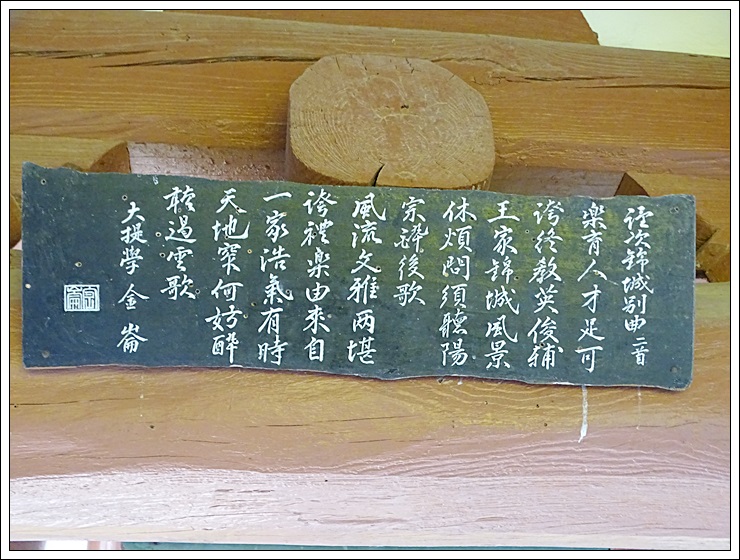 次錦城別曲 二首
楽育人才足可
誇終教英俊補
王家錦城風景
休煩問須聽陽
宗醉後歌
風流文雅两堪
誇禮楽由來自
一家浩氣有時
天地窄何妨酔
遏雲歌
大提學 金崙